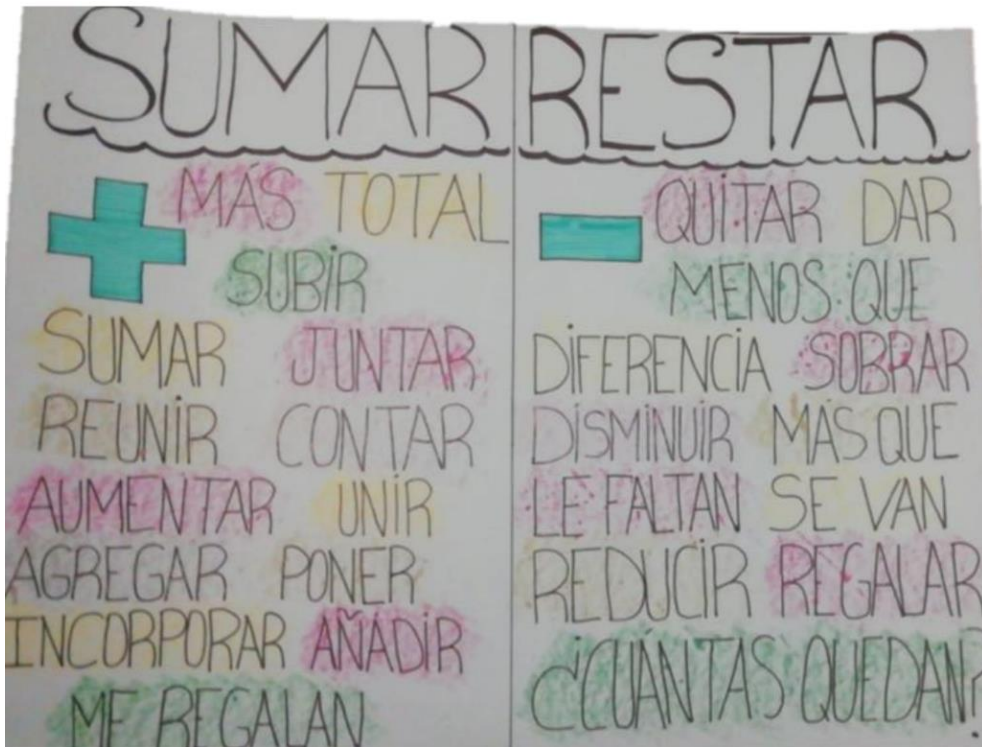 SUMAR
MÁS TOTAL
SUBIR
SUMAR JUNTAR
REUNIR CONTAR
AUMENTAR UNIR
AGREGAR PONER
INCORPORAR AÑADIR
ME REGALAN
RESTAR
QUITAR DAR
MENOS QUE
DIFERENCIA SOBRAR
DISMINUIR MÁS QUE
LE FALTAN SE VAN
REDUCIR REGALAR
¿CUÁNTAS QUEDAN?